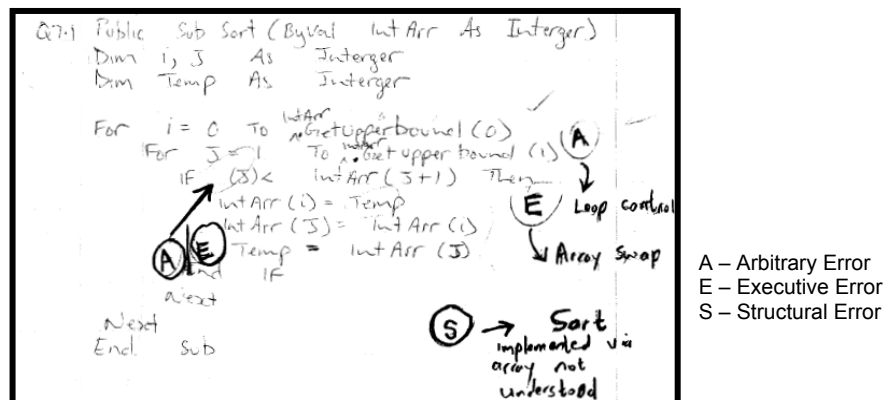 Q7.1 Public Sub Sort (ByVal IntArr As Interger)
Dim i, J As Interger
Dim Temp As Interger
For i = 0 To IntArr.Getupperbound (0)
For J = 1 To IntArr.Getupper bound (1)
A
IF (J) < IntArr (J+1) Then
IntArr (i) = Temp
E
Loop control
IntArr (J) = IntArr (i)
A E
Temp = IntArr (J)
Array swap
End IF
Next
Next
End Sub
S
Sort
implemented via
array not
understood
A – Arbitrary Error
E – Executive Error
S – Structural Error